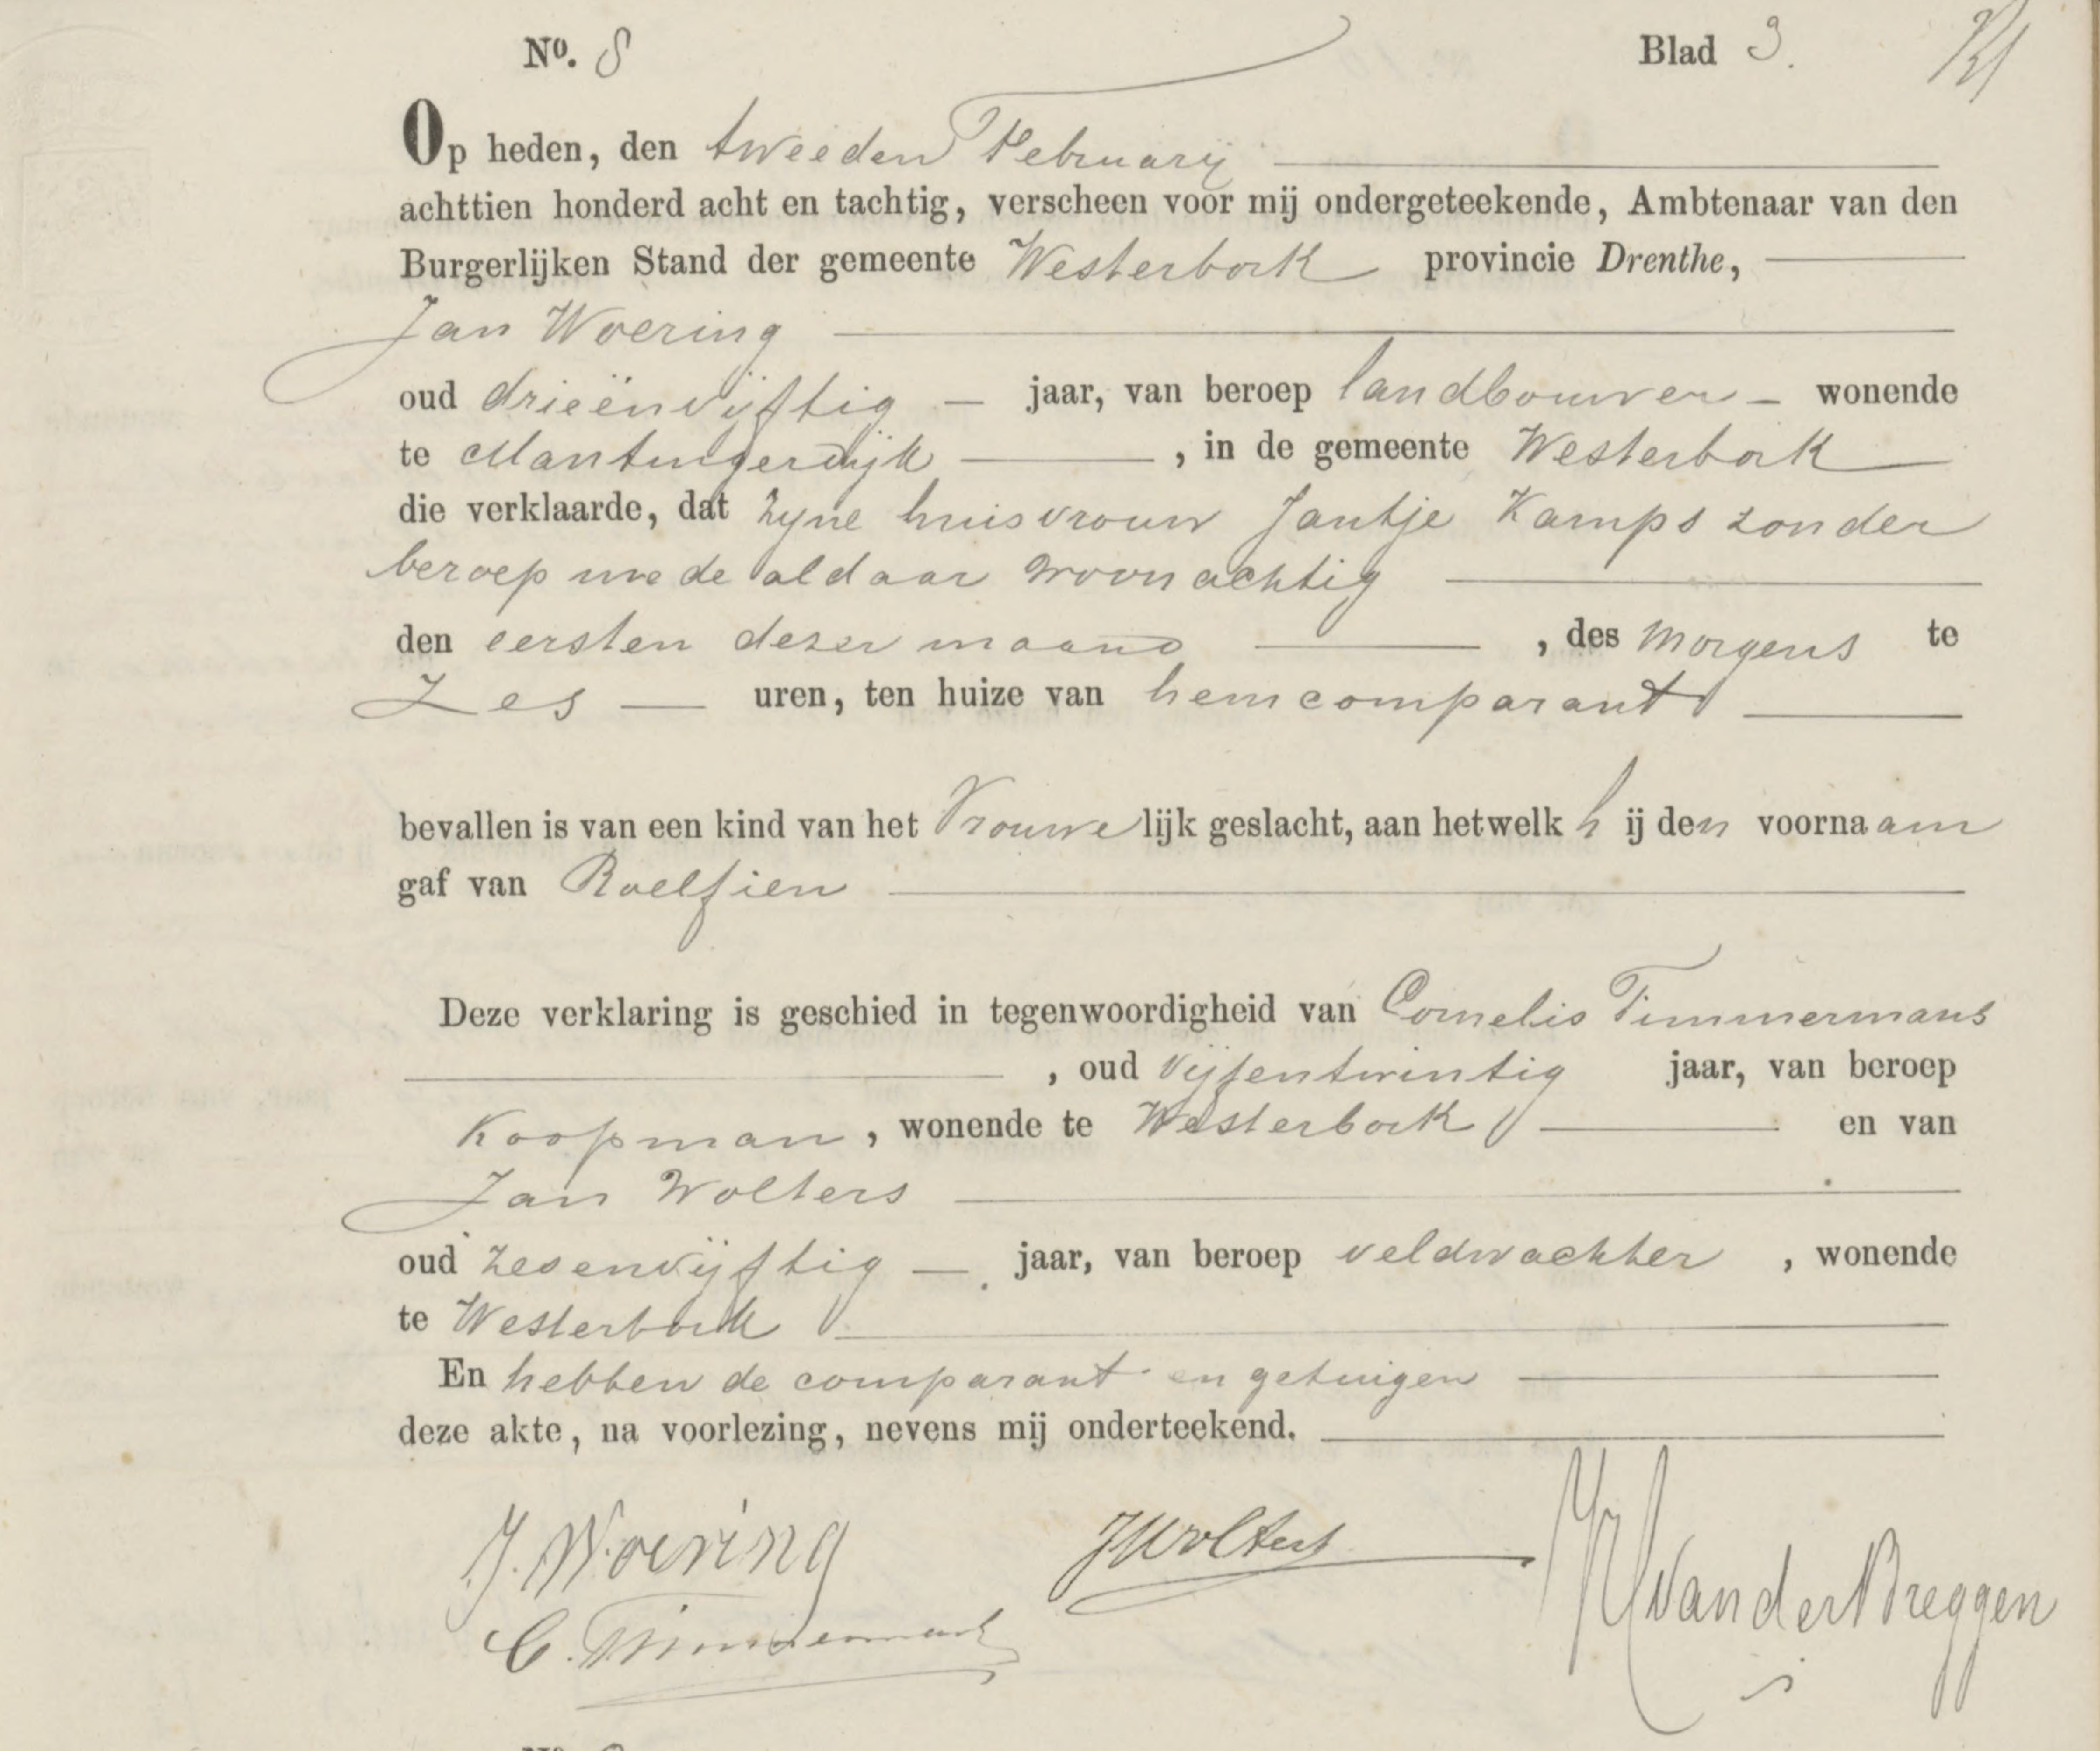 No. 8 Blad 3.
Op heden, den tweeden Februarij
achttien honderd acht en tachtig, verscheen voor mij ondergeteekende, Ambtenaar van den
Burgerlijken Stand der gemeente Westerbork provincie Drenthe,
Jan Woering
oud drieënvijftig jaar, van beroep landbouwer wonende
te Mantingerdijk, in de gemeente Westerbork
die verklaarde, dat zyne huisvrouw Jantje Kamps zonder
beroep mede aldaar woonachtig
den eersten dezer maand, des morgens te
Zes uren, ten huize van hem comparant
bevallen is van een kind van het Vrouwelijk geslacht, aan hetwelk hij den voornaam
gaf van Roelfien
Deze verklaring is geschied in tegenwoordigheid van Cornelis Timmermans
, oud vijfentwintig jaar, van beroep
Koopman, wonende te Westerbork en van
Jan Wolters
oud zesenvijftig jaar, van beroep veldwachter, wonende
te Westerbork
En hebben de comparant en getuigen
deze akte, na voorlezing, nevens mij onderteekend.
J. Woering JWolters van der Breggen
C. Timmermans